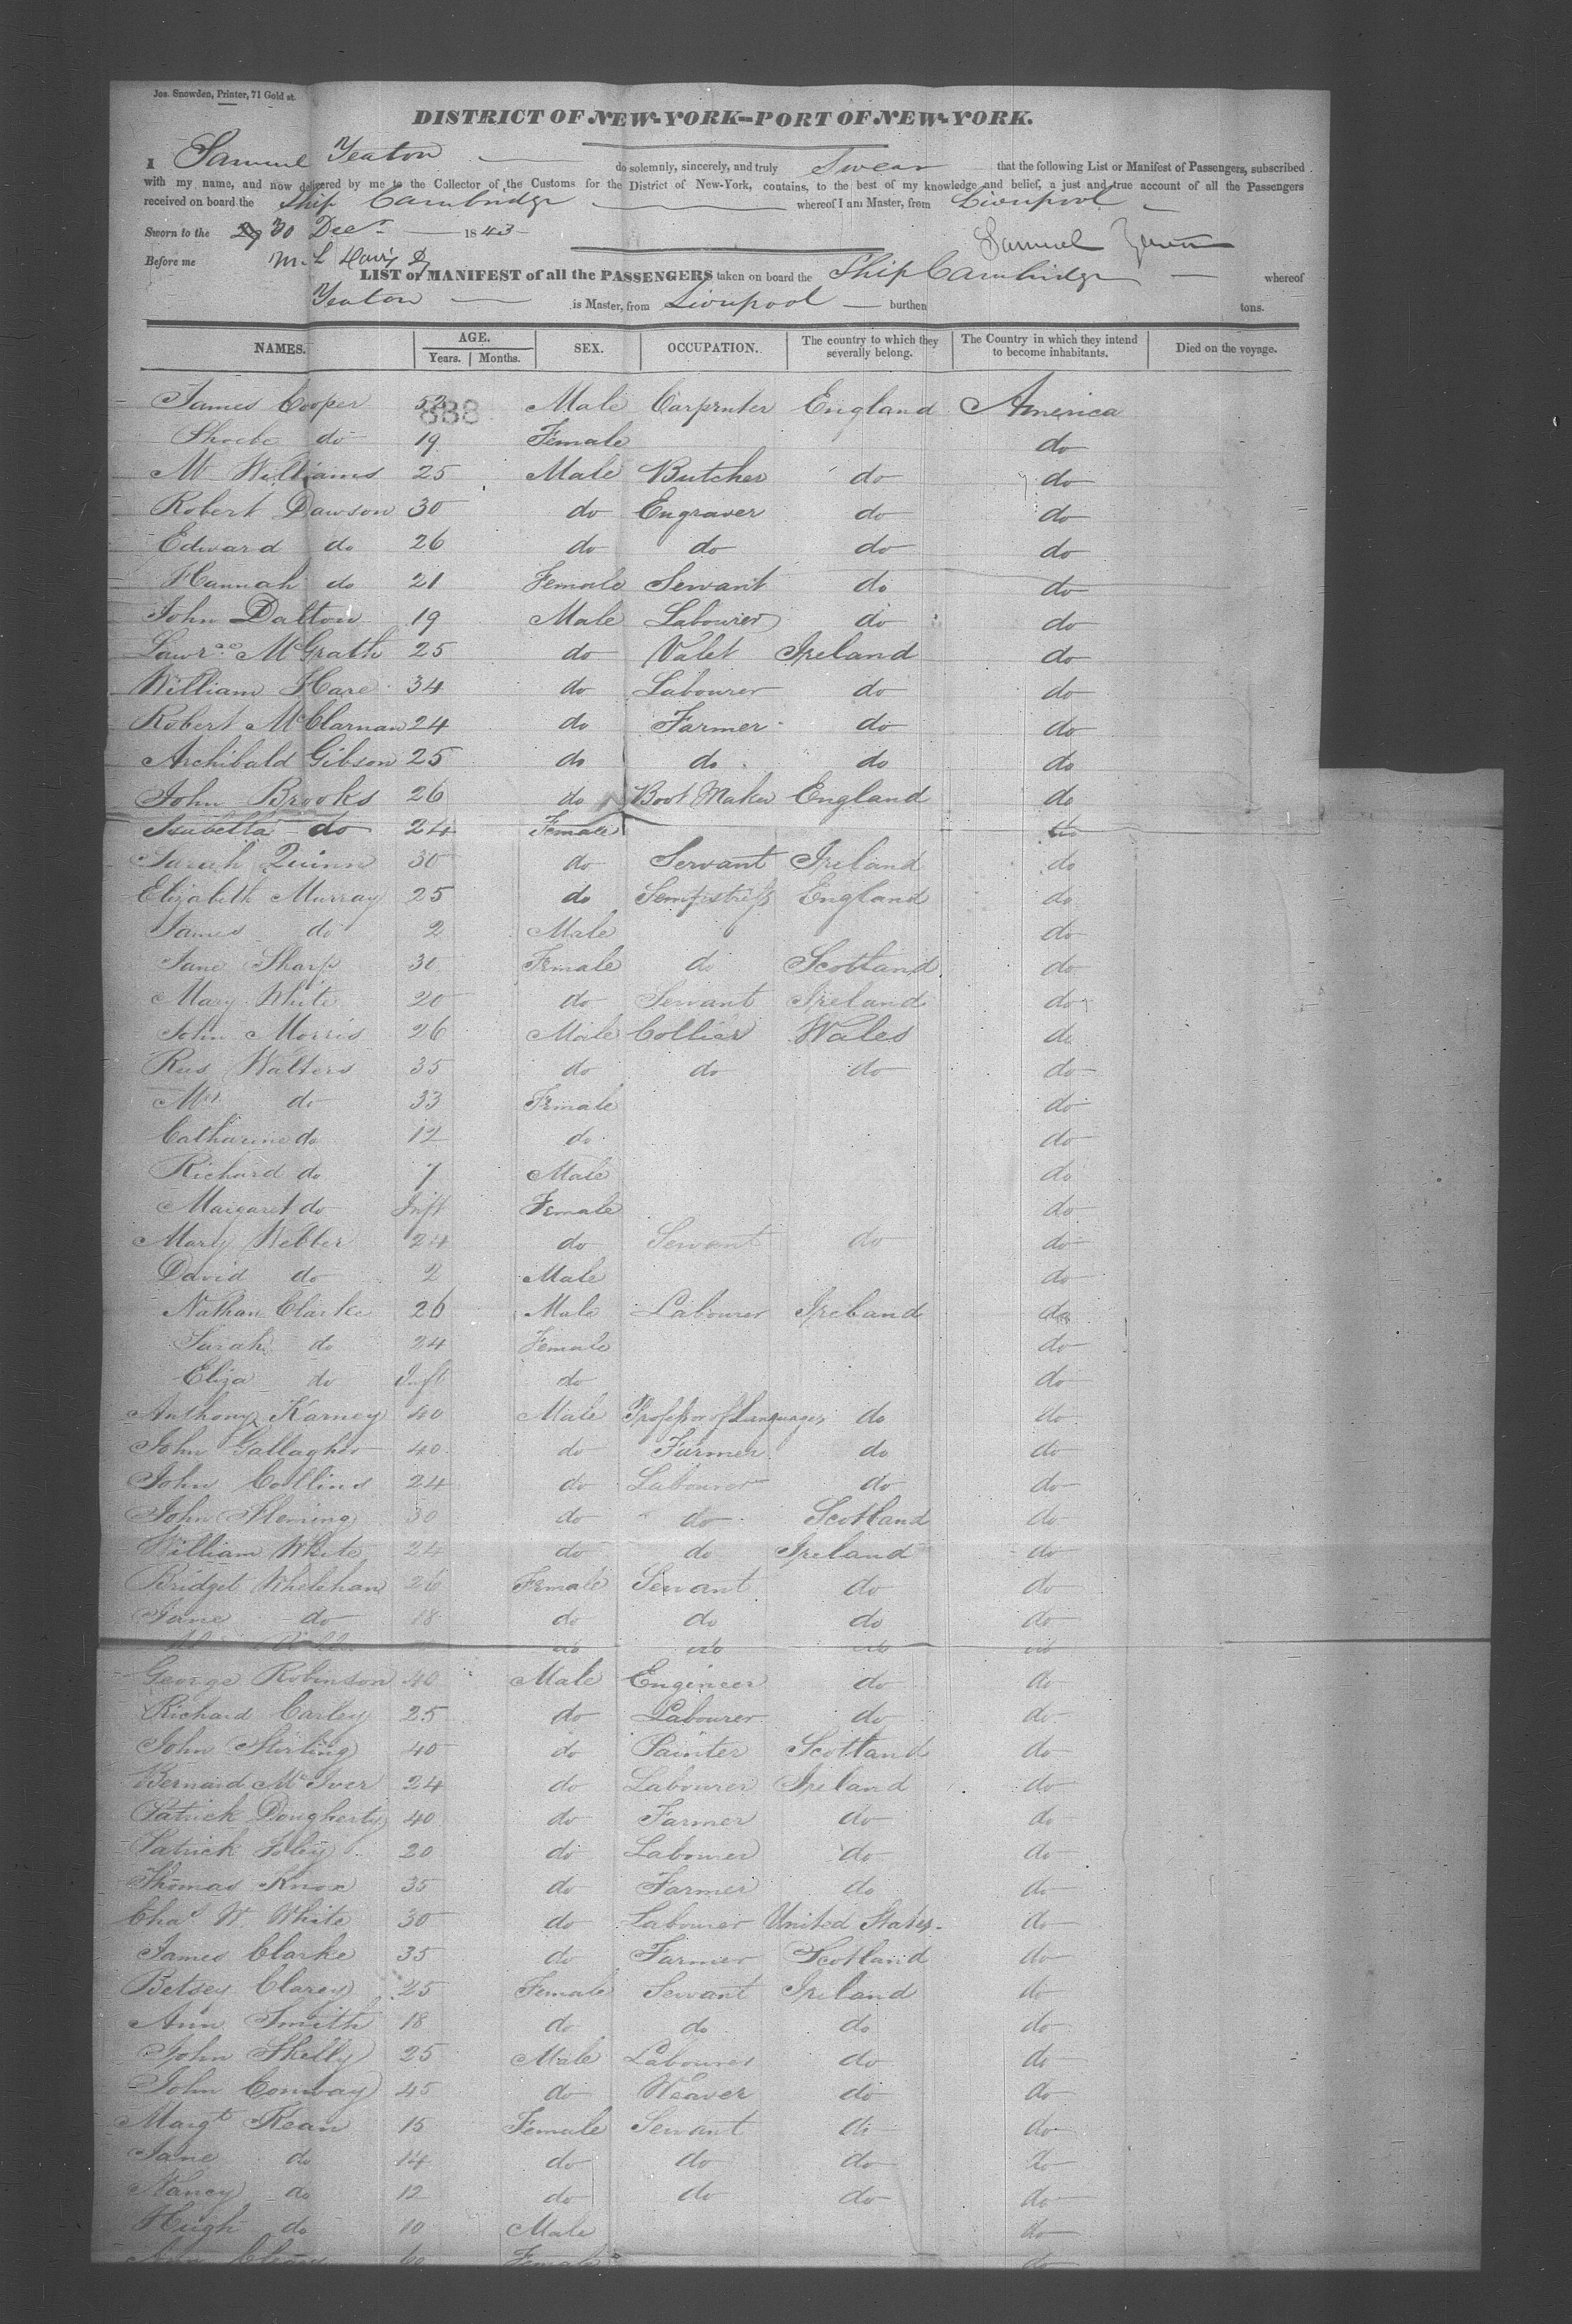 Jos. Snowden, Printer, 71 Gold st.
DISTRICT OF NEW-YORK—PORT OF NEW-YORK.
I Samuel Yeaton do solemnly, sincerely, and truly Swear that the following List or Manifest of Passengers, subscribed
with my name, and now delivered by me to the Collector of the Customs for the District of New-York, contains, to the best of my knowledge and belief, a just and true account of all the Passengers
received on board the Ship Cambridge whereof I am Master, from Liverpool
Sworn to the 30 Decr 1843 Samuel Yeaton
Before me
LIST or MANIFEST of all the PASSENGERS taken on board the Ship Cambridge whereof
Yeaton is Master, from Liverpool burthen tons.
NAMES. AGE. Years. Months. SEX. OCCUPATION. The country to which they severally belong. The Country in which they intend to become inhabitants. Died on the voyage.
888
James Cooper 52 Male Carpenter England America
Phoebe do 19 Female do
M Williams 25 Male Butcher do do
Robert Dawson 30 do Engraver do do
Edward do 26 do do do do
Hannah do 21 Female Servant do do
John Dalton 19 Male Labourer do do
Lawrce McGrath 25 do Valet Ireland do
William Hare 34 do Labourer do do
Robert McClarnan 24 do Farmer do do
Archibald Gibson 25 do do do do
John Brooks 26 do Boot Maker England do
Isabella do 24 Female do
Sarah Quinn 30 do Servant Ireland do
Elizabeth Murray 25 do Sempstress England do
James do 2 Male do
Jane Sharp 30 Female do Scotland do
Mary White 20 do Servant Ireland do
John Morris 26 Male Collier Wales do
Rees Walters 35 do do do do
Mrs do 33 Female do
Catharine do 12 do do
Richard do 7 Male do
Margaret do Inft Female do
Mary Webber 24 do Servant do do
David do 2 Male do
Nathan Clarke 26 Male Labourer Ireland do
Sarah do 24 Female do
Eliza do Inft do do
Anthony Karney 40 Male Professor of Languages do do
John Gallagher 40 do Farmer do do
John Collins 24 do Labourer do do
John Fleming 30 do do Scotland do
William White 24 do do Ireland do
Bridget Whelehan 26 Female Servant do do
Jane do 18 do do do do
do do do do
George Robinson 40 Male Engineer do do
Richard Carley 25 do Labourer do do
John Sterling 40 do Painter Scotland do
Bernard McIver 24 do Labourer Ireland do
Patrick Dougherty 40 do Farmer do do
Patrick Foley 20 do Labourer do do
Thomas Knox 35 do Farmer do do
Chas W. White 30 do Labourer United States do
James Clarke 35 do Farmer Scotland do
Betsey Clarey 25 Female Servant Ireland do
Ann Smith 18 do do do do
John Shelly 25 Male Labourer do do
John Conway 45 do Weaver do do
Margt Kean 15 Female Servant do do
Jane do 14 do do do do
Nancy do 12 do do do do
Hugh do 10 Male do
60 Female do